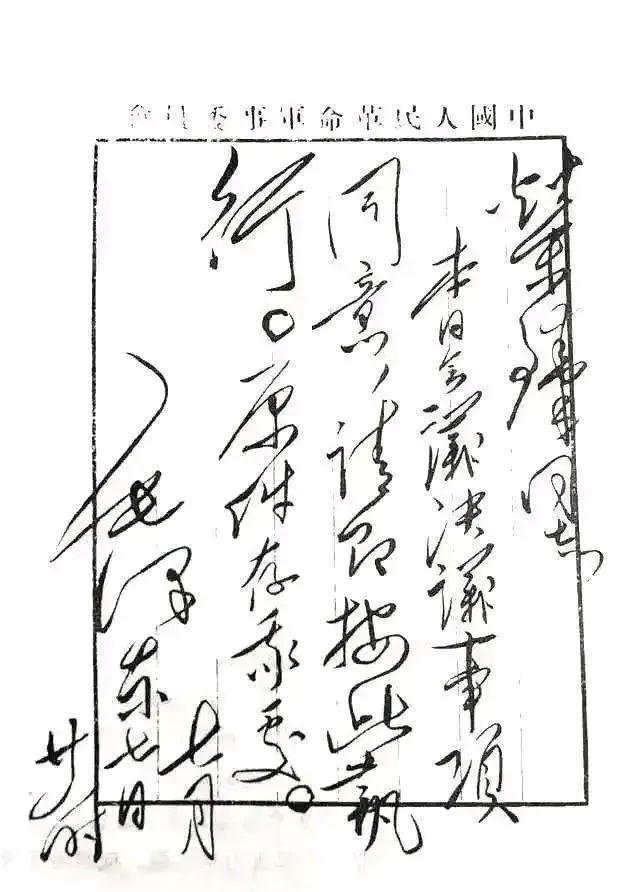 中國人民革命軍事委員會
榮臻同志
本日会議決議事項
同意，請即按此執
行。原件存我處。
七月
毛澤东七日
廿时